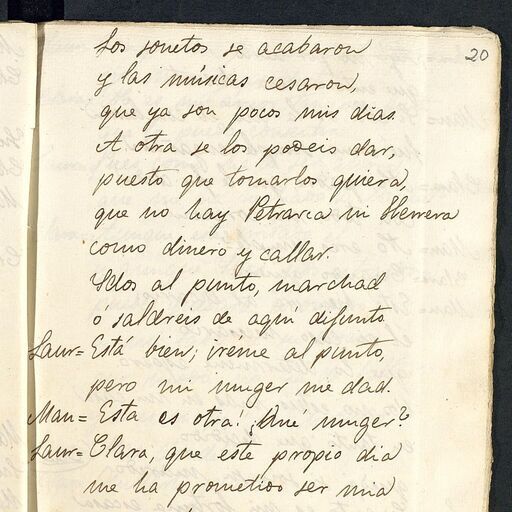 20
Los sonetos se acabaron
y las músicas cesaron,
que ya son pocos mis dias.
A otra se los podeis dar,
puesto que tomarlos quiera,
que no hay Petrarca ni Herrera
como dinero y callar.
Idos al punto, marchad
ó saldreis de aquí difunto
Laur= Está bien; iréme al punto,
pero mi muger me dad.
Man= Esta es otra! ¿Qué muger?
Laur= Clara, que este propio dia
me ha prometido ser mia